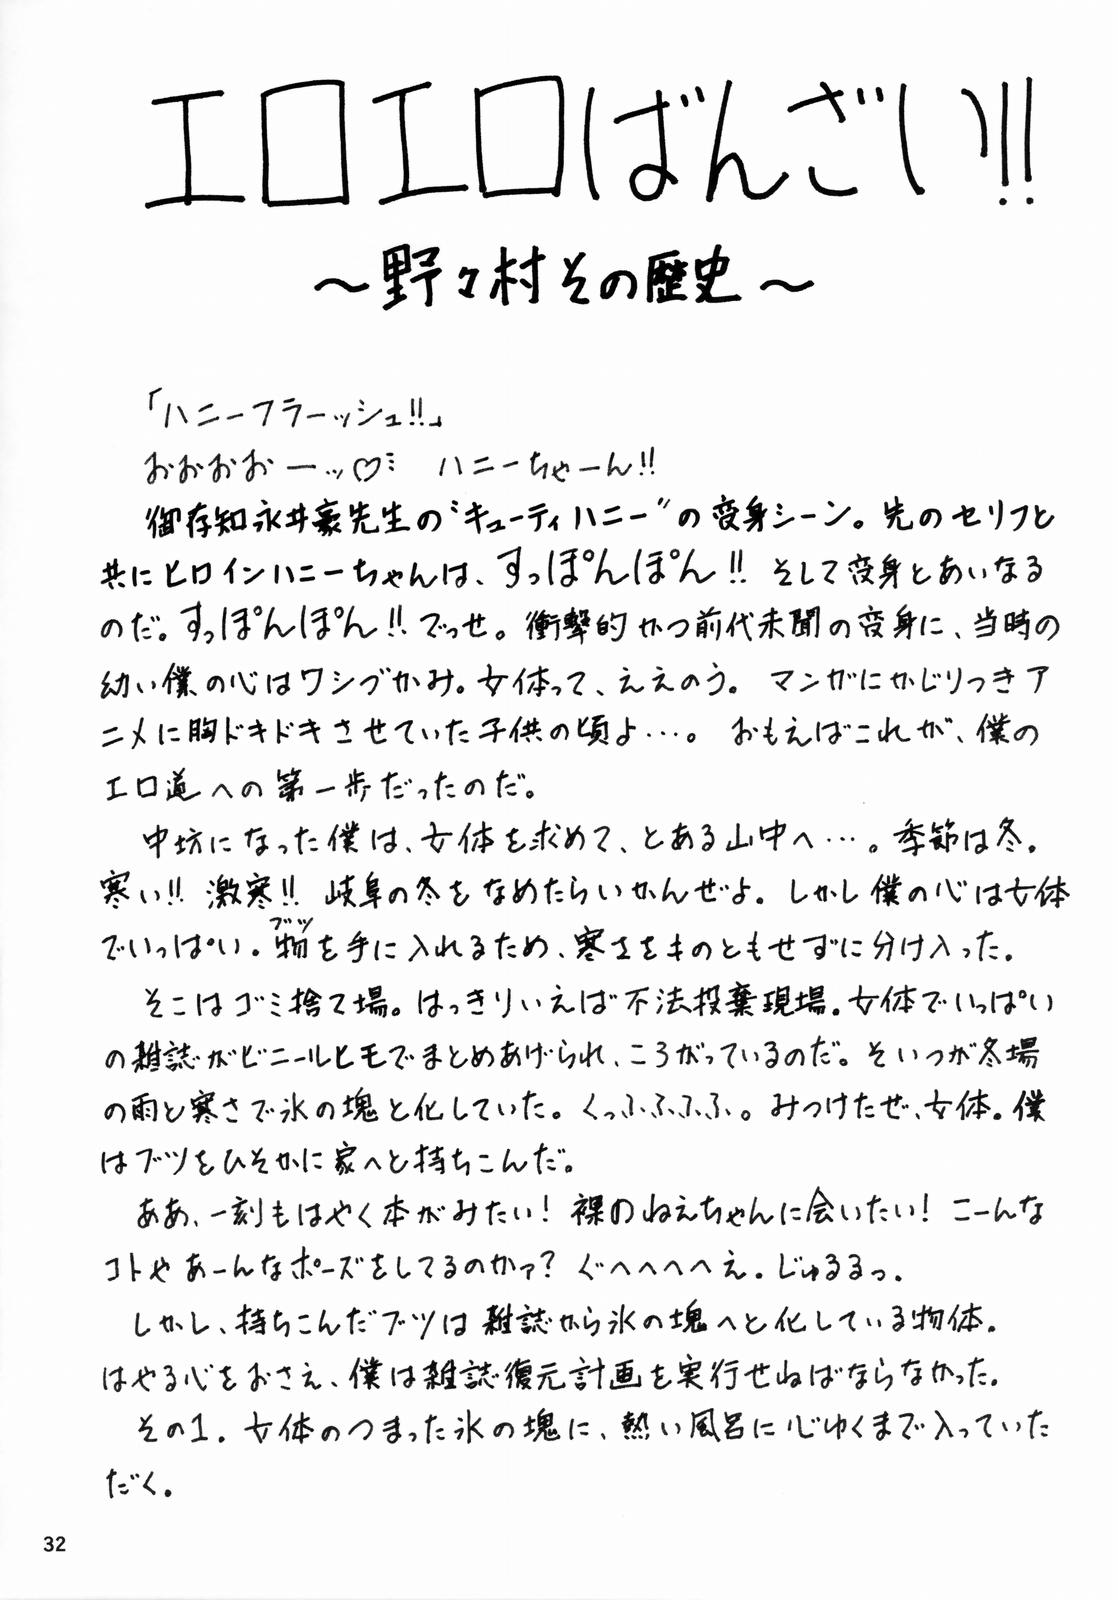 エロエロばんざい!!
～野々村その歴史～
「ハニーフラーッシュ!!」
おおおおーッ♡ ハニーちゃーん!!
御存知永井豪先生の“キューティハニー”の変身シーン。先のセリフと
共にヒロインハニーちゃんは、すっぽんぽん!! そして変身とあいなる
のだ。すっぽんぽん!! でっせ。衝撃的かつ前代未聞の変身に、当時の
幼い僕の心はワシづかみ。女体って、ええのう。 マンガにかじりつきア
ニメに胸ドキドキさせていた子供の頃よ…。 おもえばこれが、僕の
エロ道への第一歩だったのだ。
中坊になった僕は、女体を求めて、とある山中へ…。季節は冬。
寒い!! 激寒!! 岐阜の冬をなめたらいかんぜよ。しかし僕の心は女体
でいっぱい。物(ブツ)を手に入れるため、寒さをものともせずに分け入った。
そこはゴミ捨て場。はっきりいえば不法投棄現場。女体でいっぱい
の雑誌がビニールヒモでまとめあげられ、ころがっているのだ。そいつが冬場
の雨と寒さで氷の塊と化していた。くっふふふふ。みつけたぜ、女体。僕
はブツをひそかに家へと持ちこんだ。
ああ、一刻もはやく本がみたい! 裸のねえちゃんに会いたい! こーんな
コトやあーんなポーズをしてるのかァ? ぐへへへへえ。じゅるるっ。
しかし、持ちこんだブツは雑誌から氷の塊へと化している物体。
はやる心をおさえ、僕は雑誌復元計画を実行せねばならなかった。
その1. 女体のつまった氷の塊に、熱い風呂に心ゆくまで入っていた
だく。
32